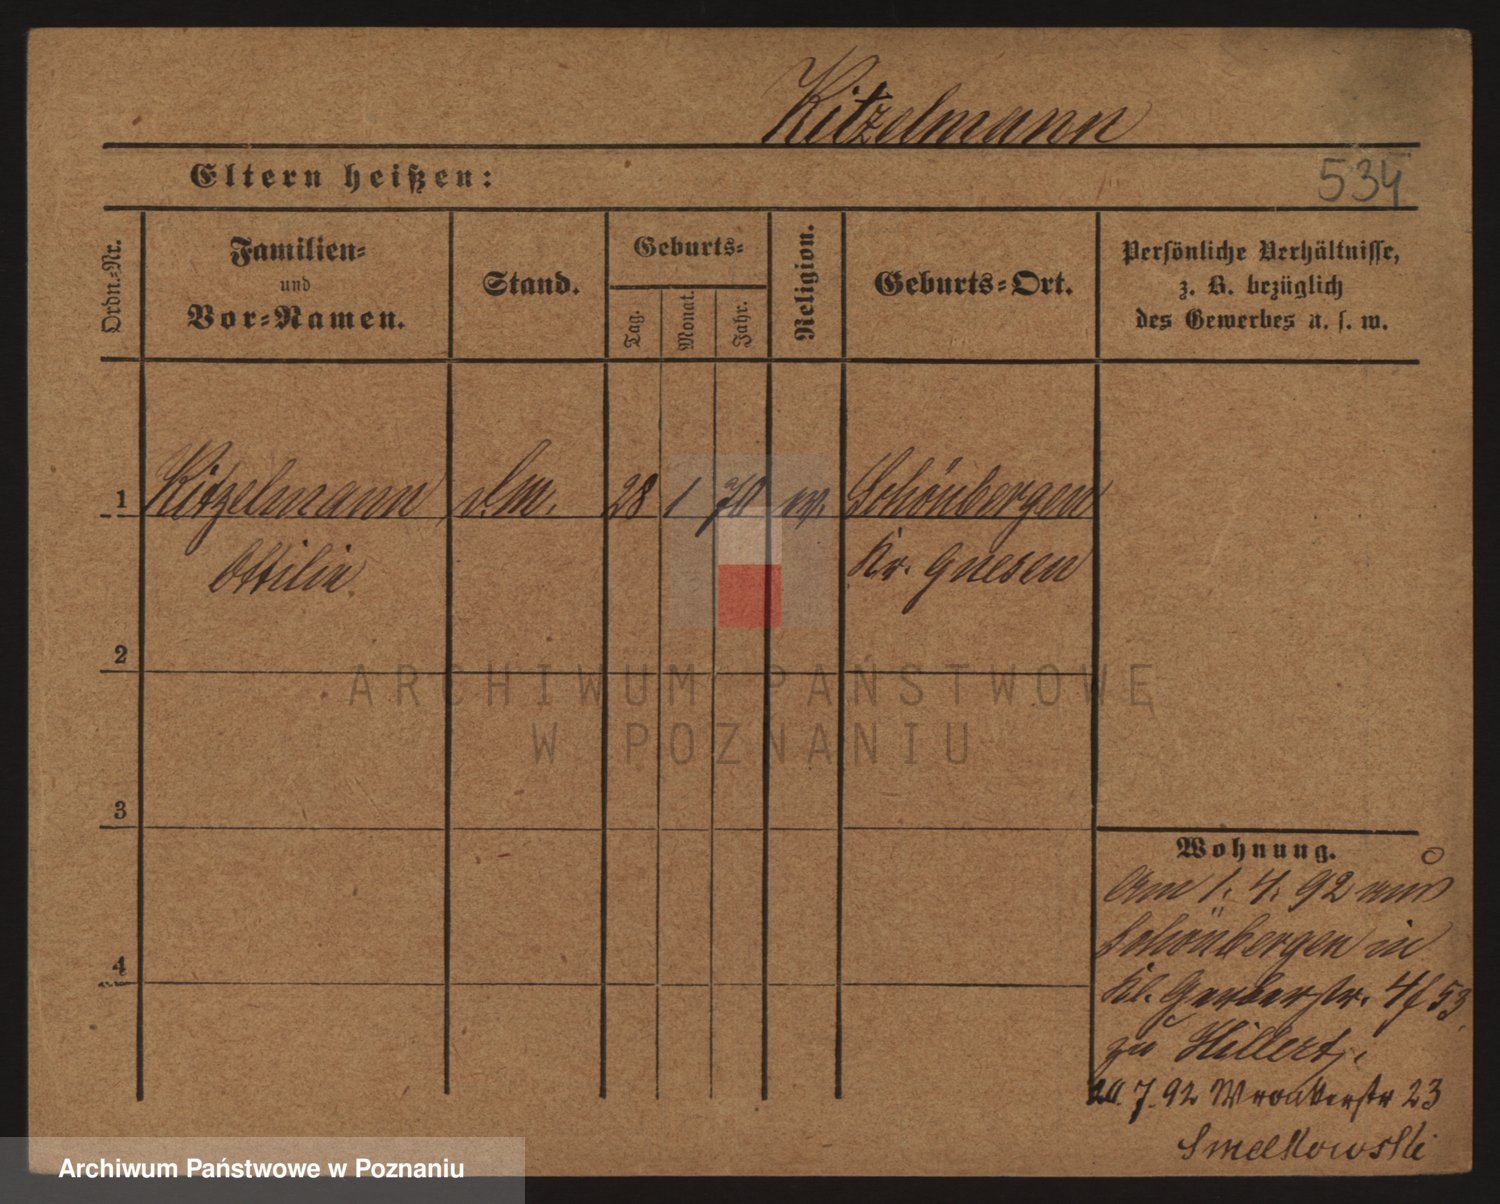 Kitzelmann
Eltern heißen:
534
Ordn.-Nr.
Familien-
und
Vor-Namen.
Stand.
Geburts-
Tag.
Monat.
Jahr.
Religion.
Geburts-Ort.
Persönliche Verhältnisse,
z. B. bezüglich
des Gewerbes u. s. w.
1
Kitzelmann
28
1
70
Schönbergen
Ottilie
Kr. Gnesen
2
ARCHIWUM PAŃSTWOWE
W POZNANIU
3
Wohnung.
Am 1. 4. 92 aus
4
Schönbergen in
Kl. Gerberstr. 4
zu Hillert
20. 7. 92 Wronkerstr 23
Smelkowski
Archiwum Państwowe w Poznaniu